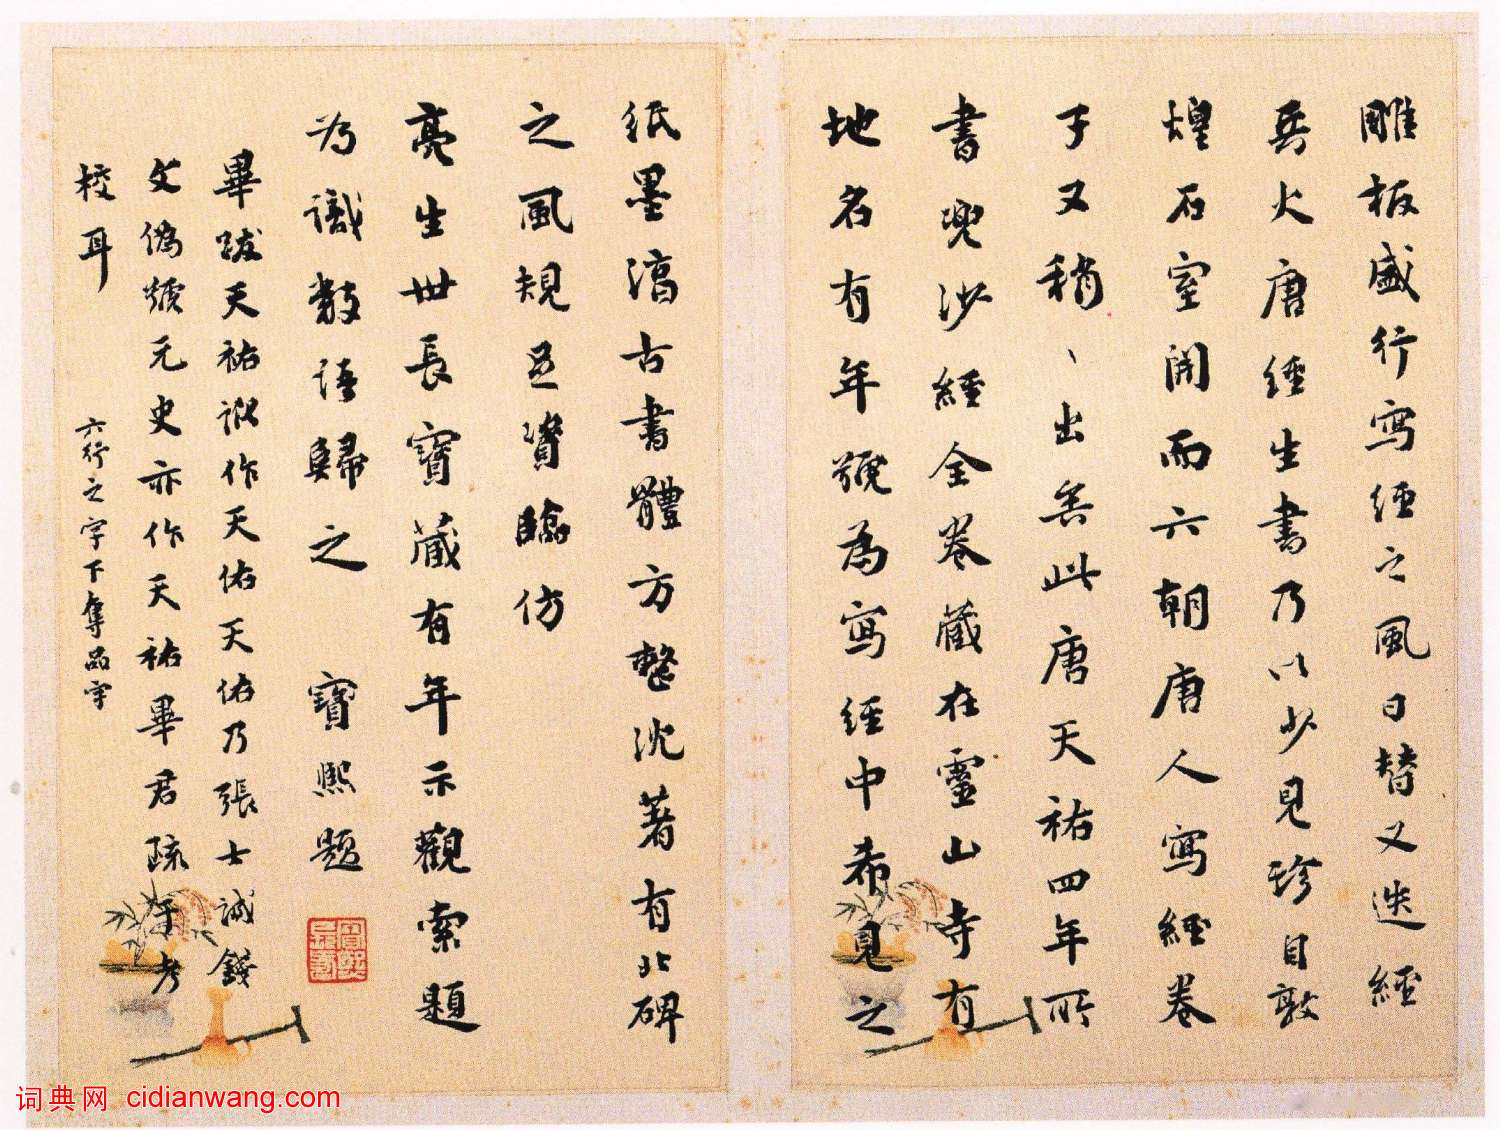 雕板盛行寫經之風日替又迭經
兵火唐經生書乃以少見珍自敦
煌石室開而六朝唐人寫經卷
子又稍、出矣此唐天祐四年所
書兜沙經全卷藏在靈山寺有
地名有年號為寫經中希見之
紙墨渟古書體方整沈著有北碑
之風規足資臨仿
亮生世長寶藏有年示觀索題
為識數語歸之 寶熙題
畢跋天祐訛作天佑天佑乃張士誠錢
文偽號元史亦作天祐畢君疏于考
校耳
六行之字下奪品字
词典网 cidianwang.com